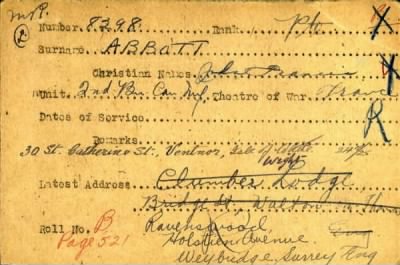 M.P.
2 Number. 8298. Rank. Pte
Surname. ABBOTT.
Christian Names. John Francis
Unit. 2nd Bn Can Inf. Theatre of War. France
Dates of Service. R
Remarks.
30 St. Catherine St., Ventnor, Isle of Wight
Latest Address. Clumber Lodge
Bridge St., Walton on Thames
Roll No. B Ravenswood, Eng
Page 521 Holstein Avenue.
Weybridge, Surrey Eng